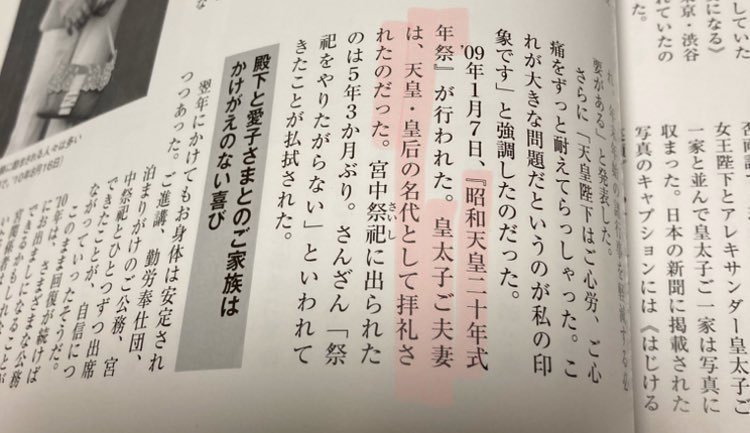 していた
になる》
東京・渋谷
れていたの
た。
女王陛下とアレキサンダー皇太子ご
一家と並んで皇太子ご一家は写真に
収まった。日本の新聞に掲載された
写真のキャプションには《はじける
要がある」と発表した。
さらに「天皇陛下はご心労、ご心
痛をずっと耐えてらっしゃった。こ
れが大きな問題だというのが私の印
象です」と強調したのだった。
'09年1月7日、『昭和天皇二十年式
年祭』が行われた。皇太子ご夫妻
は、天皇・皇后の名代として拝礼さ
れたのだった。宮中祭祀に出られた
さいし
のは5年3か月ぶり。さんざん「祭
祀をやりたがらない」といわれて
きたことが払拭された。
殿下と愛子さまとのご家族は
かけがえのない喜び
翌年にかけてもお身体は安定され
つつあった。ご進講、勤労奉仕団、
泊まりがけのご公務、宮
中祭祀とひとつずつ出席
できたことが、自信につ
ながっていった。
このまま回復が続けば
'10年は、さまざまな公務
にお出ましになることが
できるかもしれない、と